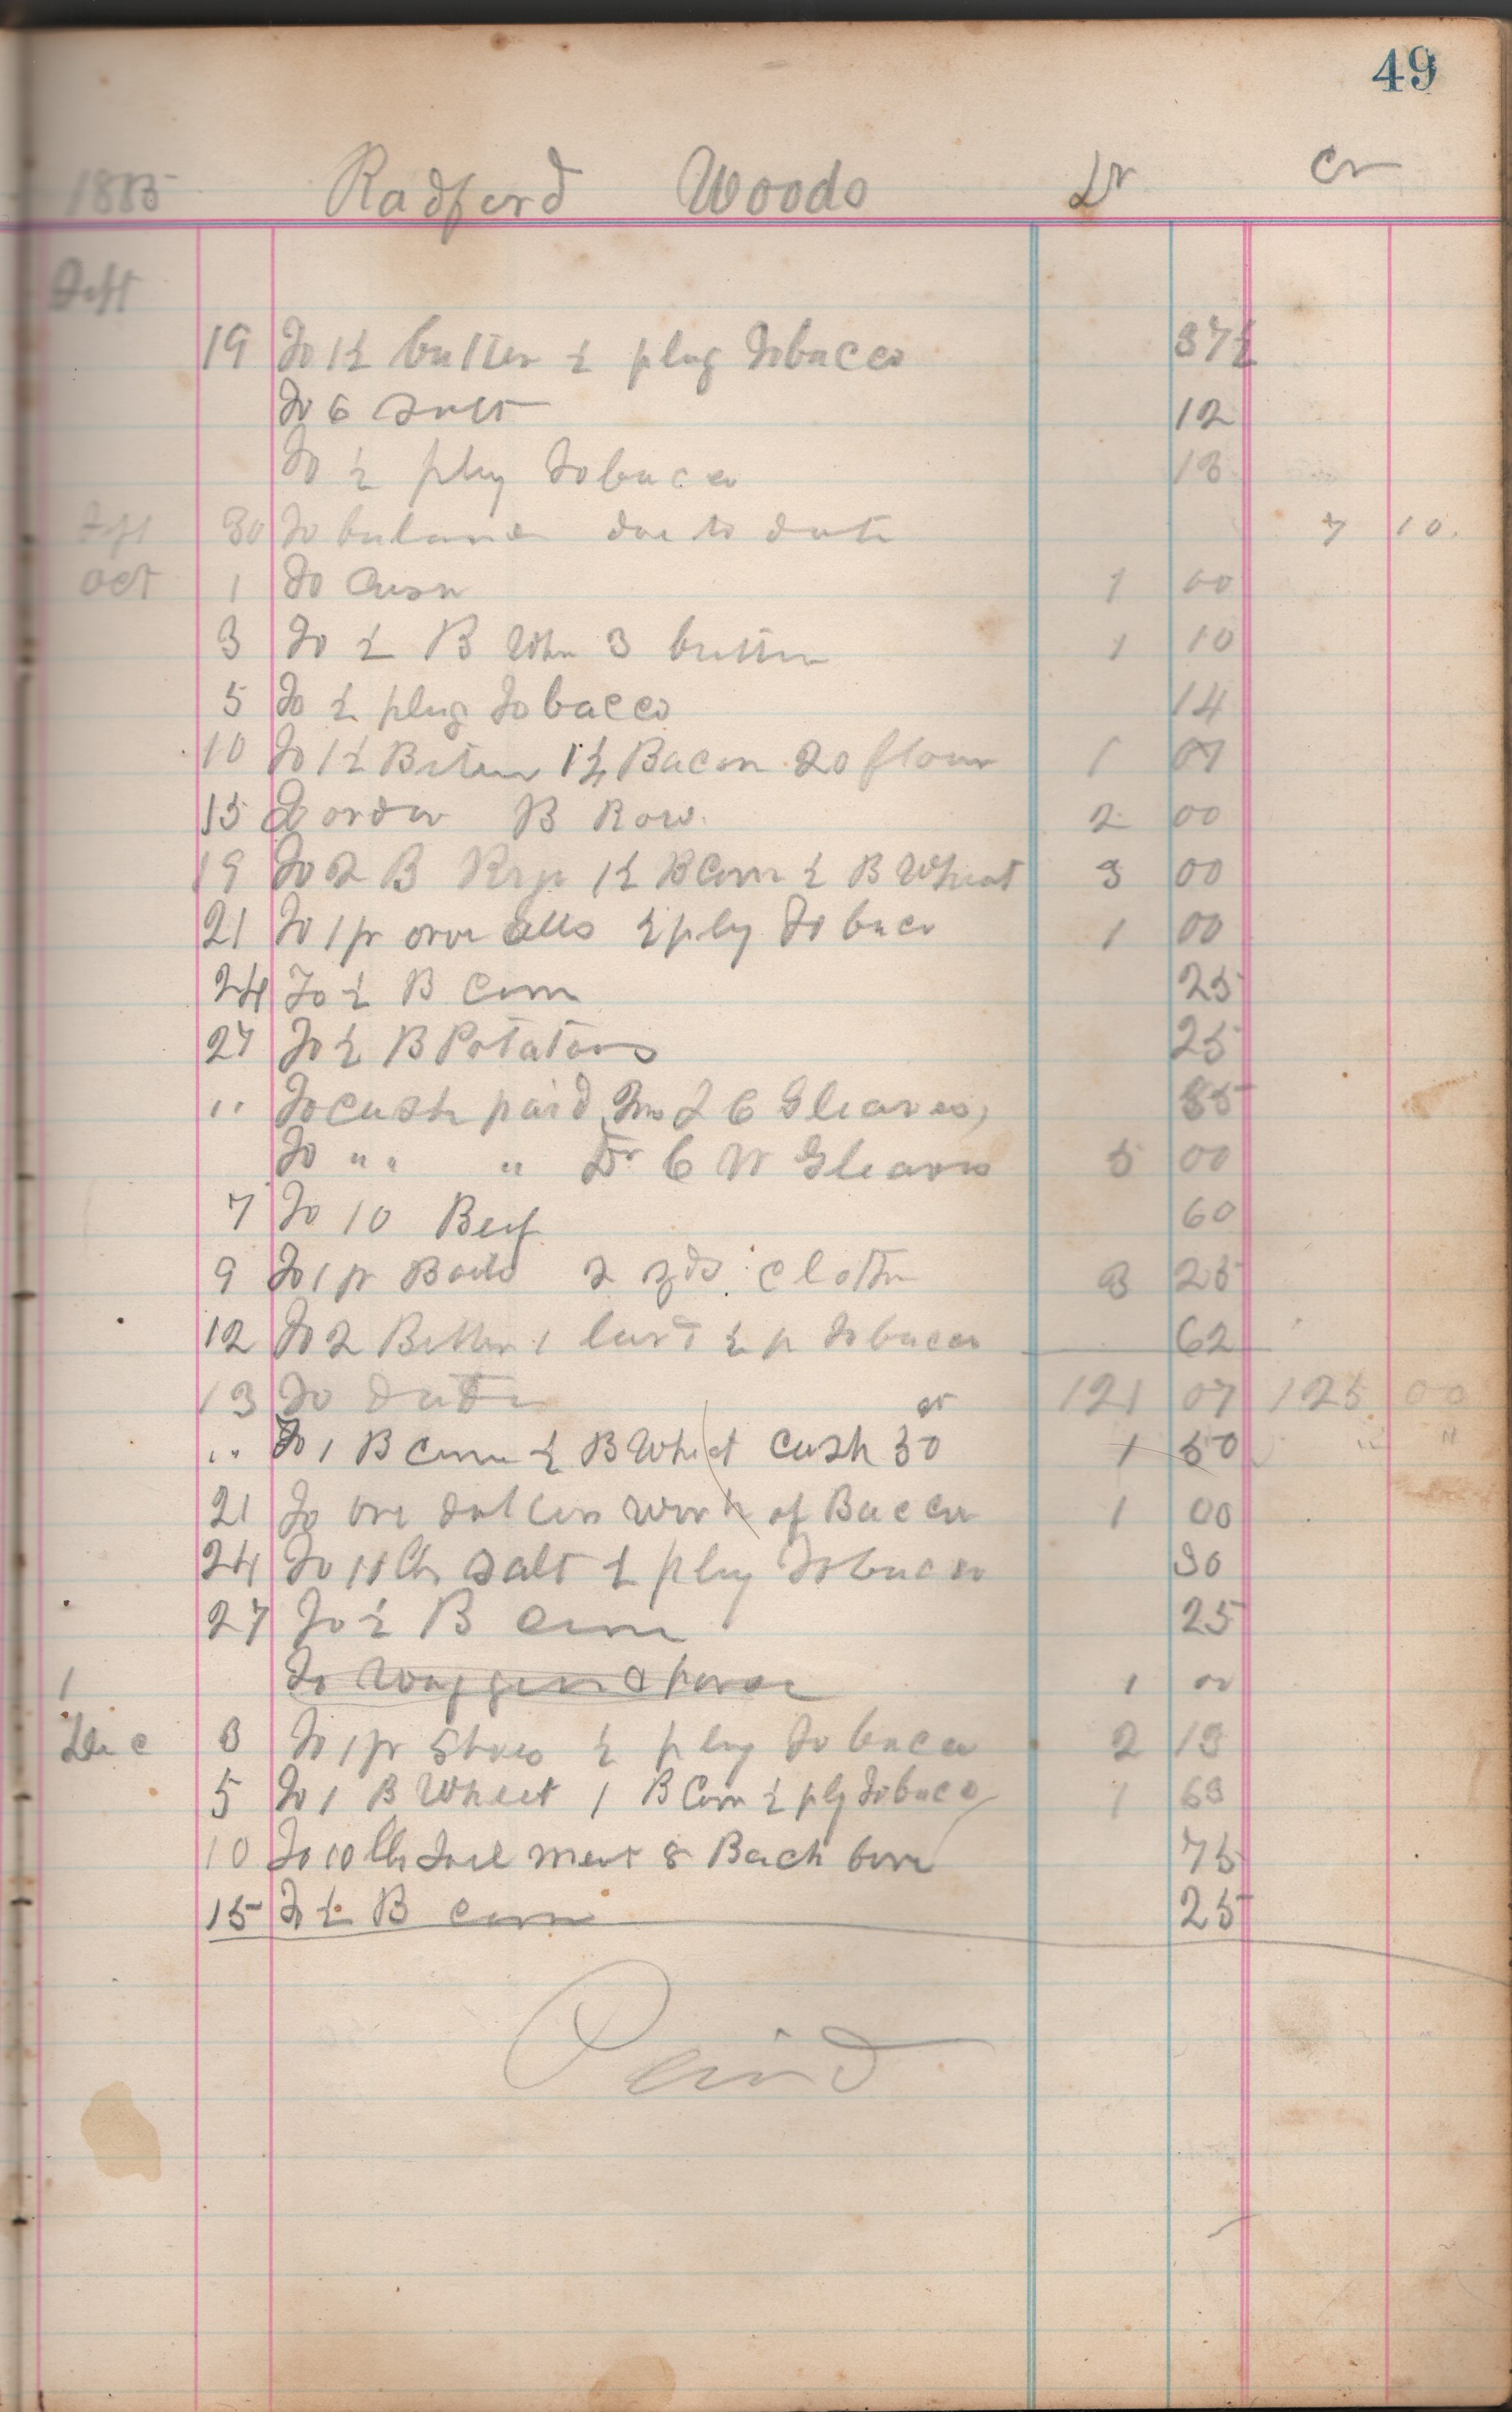 49
1885 Radford Woods Dr Cr
Sept
19 To 1½ butter ½ plug Tobacco 37½
To 6 Salt 12
To ½ plug Tobacco 13
Sept 30 To balance due to date 7 10
Oct 1 To Cash 1 00
3 To ½ B Whe 3 butter 1 10
5 To ½ plug Tobacco 14
10 To 1½ Butter 1½ Bacon 20 flour 1 07
15 To order B Row. 2 00
19 To 2 B Rye 1½ B Corn ½ B Wheat 3 00
21 To 1 pr over alls ½ plug Tobaco 1 00
24 To ½ B Corn 25
27 To ½ B Potatoes 25
" To cash paid Mrs L C Gleaves, 85
To " " " Dr C W Gleaves 5 00
7 To 10 Beef 60
9 To 1 pr Boots 2 yds cloth 3 25
12 To 2 Butter 1 lard ½ p Tobacco 62
13 To date 121 07 125 00
" To 1 B Corn ½ B Wheat Cash 50 1 50 " "
21 To one dollars worth of Bacon 1 00
24 To 11 lbs Salt ½ plug Tobacco 30
27 To ½ B corn 25
1 To Waggon & horse 1 00
Dec 3 To 1 pr Shoes ½ plug Tobacco 2 13
5 To 1 B Wheat 1 B Corn ½ plg Tobaco 1 63
10 To 10 lbs meat 8 Back bone 75
15 To ½ B corn 25
Paid